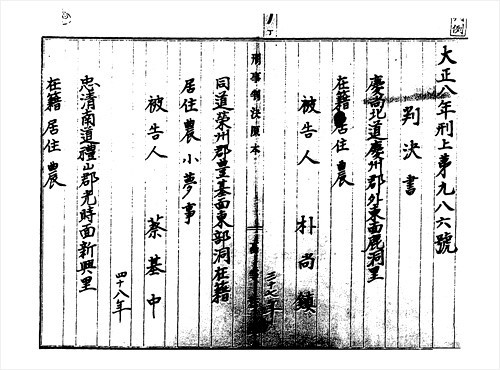 大正八年刑上第九八六號
判決書
慶尚北道慶州郡外東面鹿洞里
在籍居住農
被告人 朴尚鎮
三十七年
刑事判決原本
同道榮州郡豊基面東部洞在籍
居住農小夢事
被告人 蔡基中
四十八年
忠清南道禮山郡光時面新興里
在籍居住農